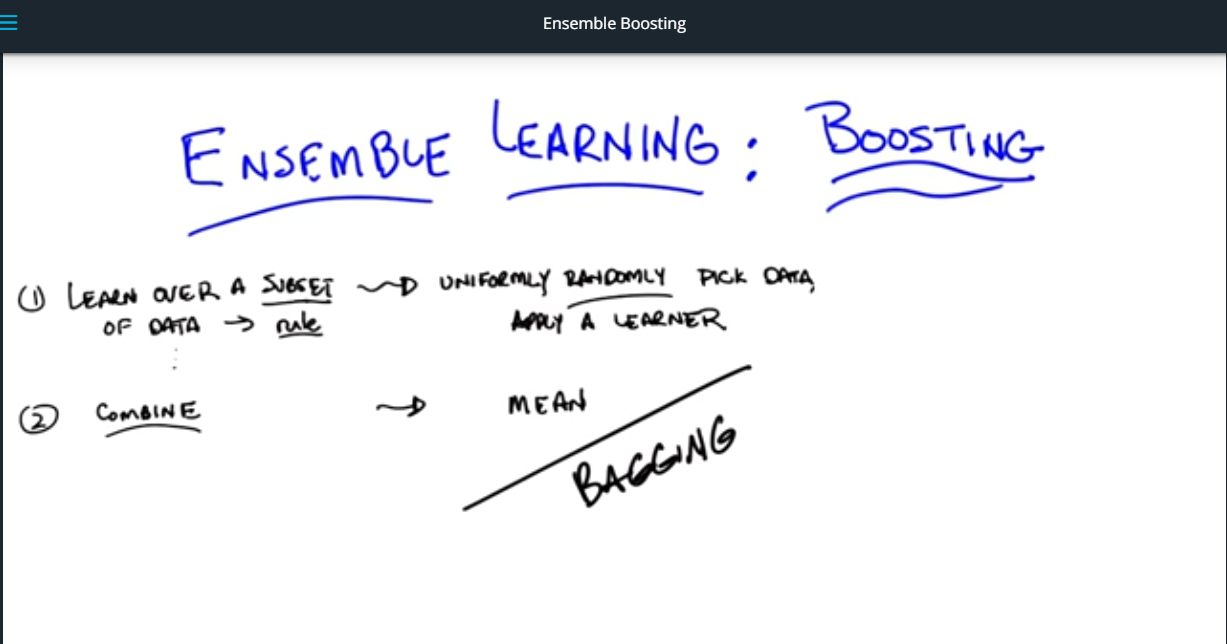 Ensemble Boosting
ENSEMBLE LEARNING: BOOSTING
(1) LEARN OVER A SUBSET ⟿ UNIFORMLY RANDOMLY PICK DATA,
OF DATA → rule APPLY A LEARNER
⋮
(2) COMBINE → MEAN
BAGGING